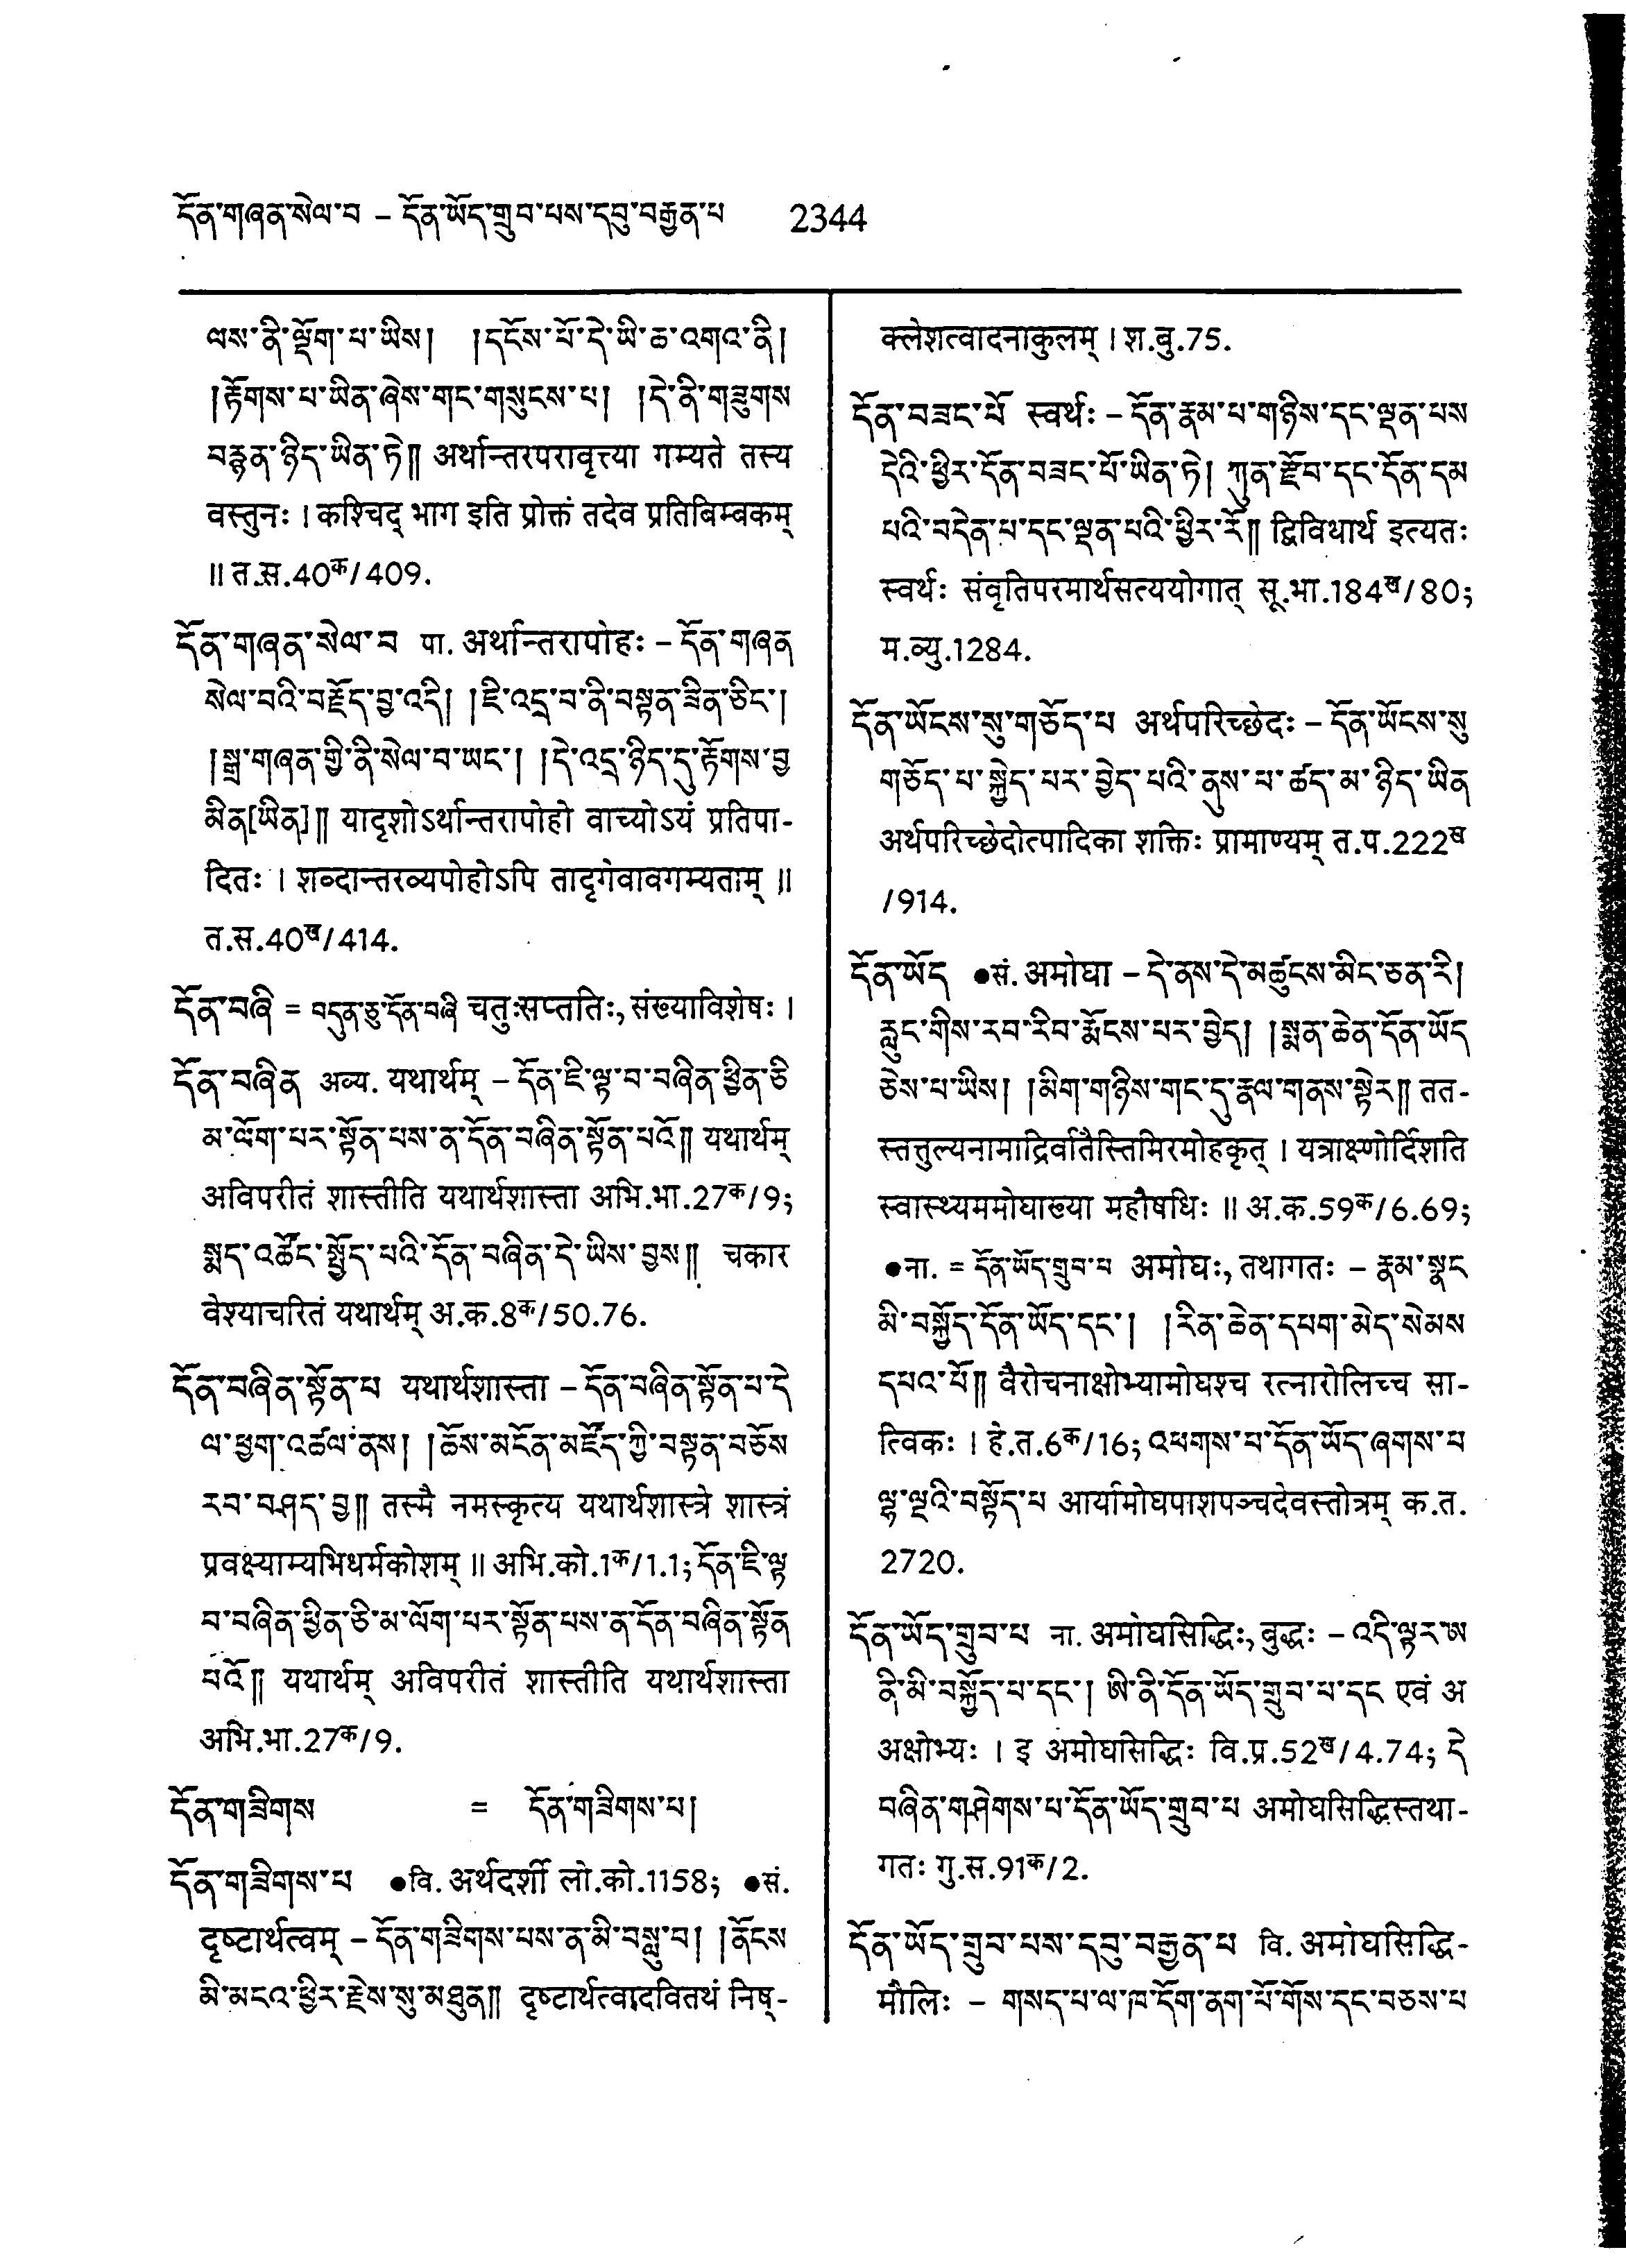 དོན་གཞན་སེལ་བ – དོན་ཡོད་གྲུབ་པས་དབུ་བརྒྱན་པ 2344
ལས་ནི་ལྡོག་པ་ཡིས། །དངོས་པོ་དེ་ཡི་ཆ་འགའ་ནི།
།རྟོགས་པ་ཡིན་ཞེས་གང་གསུངས་པ། །དེ་ནི་གཟུགས
བརྙན་ཉིད་ཡིན་ཏེ༎ अर्थान्तरपरावृत्त्या गम्यते तस्य
वस्तुनः । कश्चिद् भाग इति प्रोक्तं तदेव प्रतिबिम्बकम्
॥ त.स.40क/409.
དོན་གཞན་སེལ་བ पा. अर्थान्तरापोहः – དོན་གཞན
སེལ་བའི་བརྗོད་བྱ་འདི། །ཇི་འདྲ་བ་ནི་བསྟན་ཟིན་ཅིང་།
།སྒྲ་གཞན་གྱི་ནི་སེལ་བ་ཡང་། །དེ་འདྲ་ཉིད་དུ་རྟོགས་བྱ
མིན[ཡིན]༎ यादृशोऽर्थान्तरापोहो वाच्योऽयं प्रतिपा-
दितः । शब्दान्तरव्यपोहोऽपि तादृगेवावगम्यताम् ॥
त.स.40ख/414.
དོན་བཞི = བདུན་ཅུ་དོན་བཞི चतुःसप्ततिः, संख्याविशेषः ।
དོན་བཞིན अव्य. यथार्थम् – དོན་ཇི་ལྟ་བ་བཞིན་ཕྱིན་ཅི
མ་ལོག་པར་སྟོན་པས་ན་དོན་བཞིན་སྟོན་པའོ༎ यथार्थम्
अविपरीतं शास्तीति यथार्थशास्ता अभि.भा.27क/9;
སྨད་འཚོང་སྤྱོད་པའི་དོན་བཞིན་དེ་ཡིས་བྱས༎ चकार
वेश्याचरितं यथार्थम् अ.क.8क/50.76.
དོན་བཞིན་སྟོན་པ यथार्थशास्ता – དོན་བཞིན་སྟོན་པ་དེ
ལ་ཕྱག་འཚལ་ནས། །ཆོས་མངོན་མཛོད་ཀྱི་བསྟན་བཅོས
རབ་བཤད་བྱ༎ तस्मै नमस्कृत्य यथार्थशास्त्रे शास्त्रं
प्रवक्ष्याम्यभिधर्मकोशम् ॥ अभि.को.1क/1.1; དོན་ཇི་ལྟ
བ་བཞིན་ཕྱིན་ཅི་མ་ལོག་པར་སྟོན་པས་ན་དོན་བཞིན་སྟོན
པའོ༎ यथार्थम् अविपरीतं शास्तीति यथार्थशास्ता
अभि.भा.27क/9.
དོན་གཟིགས = དོན་གཟིགས་པ།
དོན་གཟིགས་པ ●वि. अर्थदर्शी लो.को.1158; ●सं.
दृष्टार्थत्वम् – དོན་གཟིགས་པས་ན་མི་བསླུ་བ། །ནོངས
མི་མངའ་ཕྱིར་རྗེས་སུ་མཐུན༎ दृष्टार्थत्वादवितथं निष्-
क्लेशत्वादनाकुलम् । श.बु.75.
དོན་བཟང་པོ स्वर्थः – དོན་རྣམ་པ་གཉིས་དང་ལྡན་པས
དེའི་ཕྱིར་དོན་བཟང་པོ་ཡིན་ཏེ། ཀུན་རྫོབ་དང་དོན་དམ
པའི་བདེན་པ་དང་ལྡན་པའི་ཕྱིར་རོ༎ द्विविधार्थ इत्यतः
स्वर्थः संवृतिपरमार्थसत्ययोगात् सू.भा.184ख/80;
म.व्यु.1284.
དོན་ཡོངས་སུ་གཅོད་པ अर्थपरिच्छेदः – དོན་ཡོངས་སུ
གཅོད་པ་སྐྱེད་པར་བྱེད་པའི་ནུས་པ་ཚད་མ་ཉིད་ཡིན
अर्थपरिच्छेदोत्पादिका शक्तिः प्रामाण्यम् त.प.222ख
/914.
དོན་ཡོད ●सं. अमोघा – དེ་ནས་དེ་མཚུངས་མིང་ཅན་རི།
རླུང་གིས་རབ་རིབ་རྨོངས་པར་བྱེད། །སྨན་ཆེན་དོན་ཡོད
ཅེས་པ་ཡིས། །མིག་གཉིས་གང་དུ་རྣལ་གནས་སྟེར༎ तत-
स्तत्तुल्यनामाद्रिर्वातैस्तिमिरमोहकृत् । यत्राक्ष्णोर्दिशति
स्वास्थ्यममोघाख्या महौषधिः ॥ अ.क.59क/6.69;
●ना. = དོན་ཡོད་གྲུབ་པ अमोघः, तथागतः – རྣམ་སྣང
མི་བསྐྱོད་དོན་ཡོད་དང་། །རིན་ཆེན་དཔག་མེད་སེམས
དཔའ་པོ༎ वैरोचनाक्षोभ्यामोघश्च रत्नारोलिच्च सा-
त्त्विकः । हे.त.6क/16; འཕགས་པ་དོན་ཡོད་ཞགས་པ
ལྷ་ལྔའི་བསྟོད་པ आर्यामोघपाशपञ्चदेवस्तोत्रम् क.त.
2720.
དོན་ཡོད་གྲུབ་པ ना. अमोघसिद्धिः, बुद्धः – འདི་ལྟར་ཨ
ནི་མི་བསྐྱོད་པ་དང་། ཨི་ནི་དོན་ཡོད་གྲུབ་པ་དང एवं अ
अक्षोभ्यः । इ अमोघसिद्धिः वि.प्र.52ख/4.74; དེ
བཞིན་གཤེགས་པ་དོན་ཡོད་གྲུབ་པ अमोघसिद्धिस्तथा-
गतः गु.स.91क/2.
དོན་ཡོད་གྲུབ་པས་དབུ་བརྒྱན་པ वि. अमोघसिद्धि-
मौलिः – གསད་པ་ལ་ཁ་དོག་ནག་པོ་གོས་དང་བཅས་པ